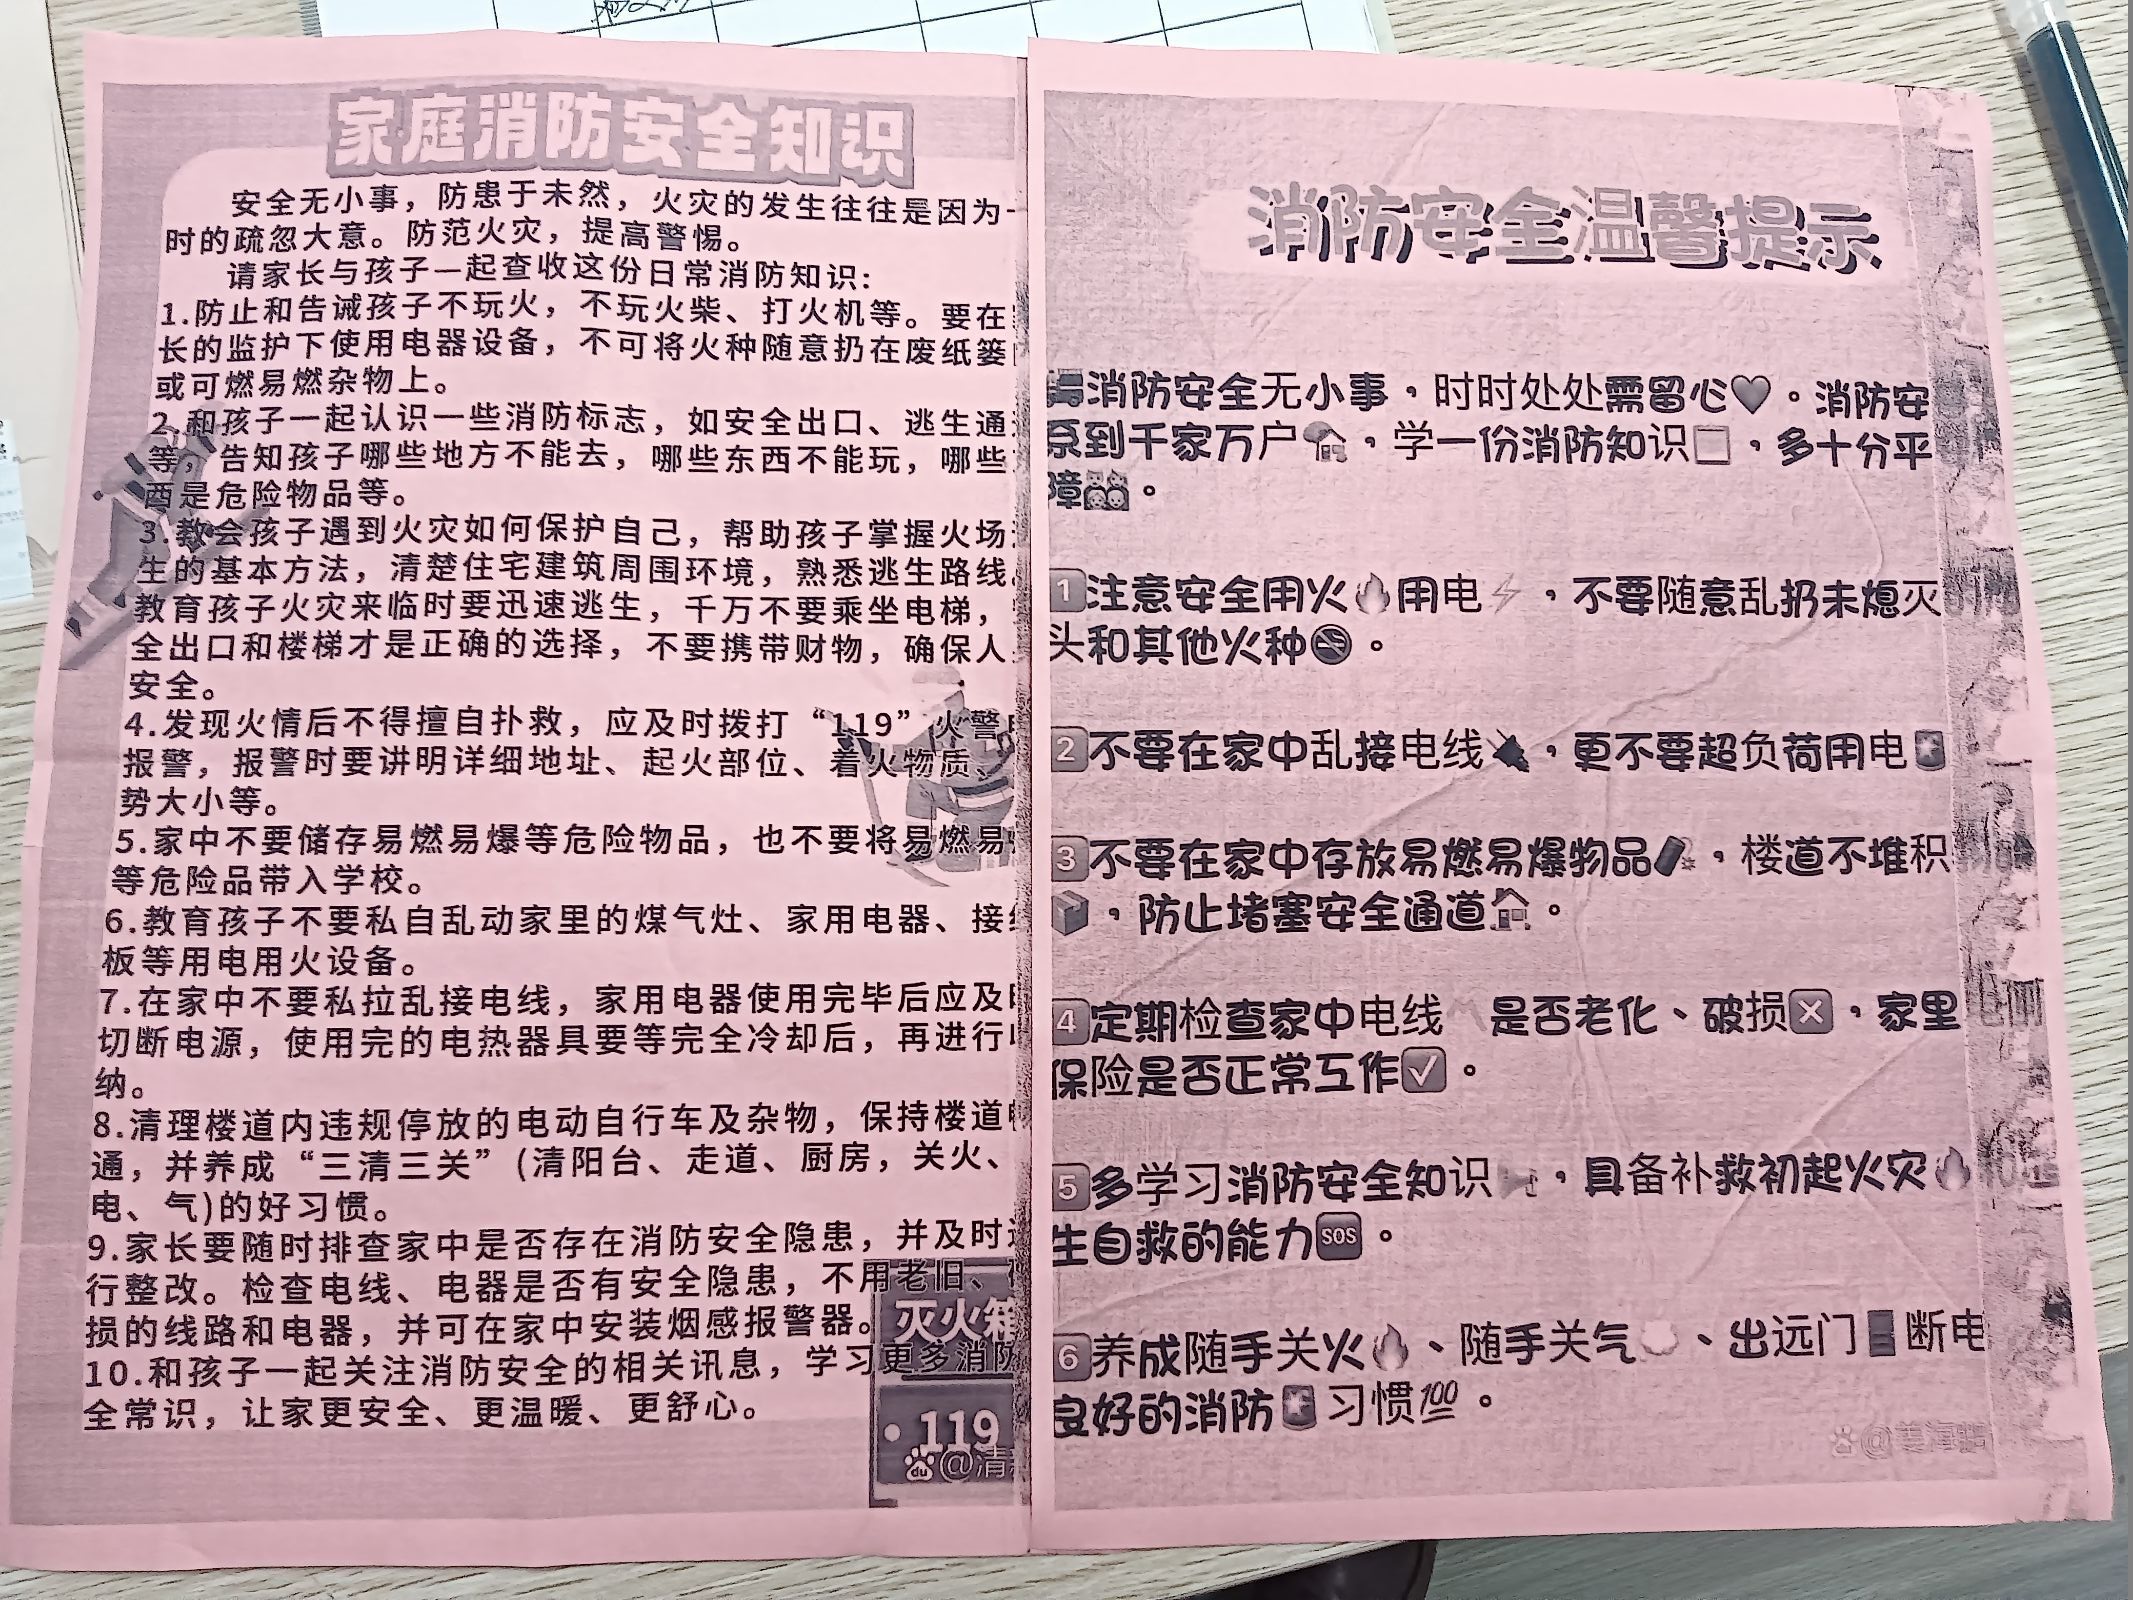 家庭消防安全知识
安全无小事，防患于未然，火灾的发生往往是因为一
时的疏忽大意。防范火灾，提高警惕。
请家长与孩子一起查收这份日常消防知识：
1.防止和告诫孩子不玩火，不玩火柴、打火机等。要在
长的监护下使用电器设备，不可将火种随意扔在废纸篓
或可燃易燃杂物上。
2.和孩子一起认识一些消防标志，如安全出口、逃生通
等，告知孩子哪些地方不能去，哪些东西不能玩，哪些
西是危险物品等。
3.教会孩子遇到火灾如何保护自己，帮助孩子掌握火场
生的基本方法，清楚住宅建筑周围环境，熟悉逃生路线。
教育孩子火灾来临时要迅速逃生，千万不要乘坐电梯，
全出口和楼梯才是正确的选择，不要携带财物，确保人
安全。
4.发现火情后不得擅自扑救，应及时拨打“119”火警
报警，报警时要讲明详细地址、起火部位、着火物质、
势大小等。
5.家中不要储存易燃易爆等危险物品，也不要将易燃易
等危险品带入学校。
6.教育孩子不要私自乱动家里的煤气灶、家用电器、接
板等用电用火设备。
7.在家中不要私拉乱接电线，家用电器使用完毕后应及
切断电源，使用完的电热器具要等完全冷却后，再进行
纳。
8.清理楼道内违规停放的电动自行车及杂物，保持楼道
通，并养成“三清三关”(清阳台、走道、厨房，关火、
电、气)的好习惯。
9.家长要随时排查家中是否存在消防安全隐患，并及时
行整改。检查电线、电器是否有安全隐患，不用老旧、
损的线路和电器，并可在家中安装烟感报警器。
10.和孩子一起关注消防安全的相关讯息，学习更多消防
全常识，让家更安全、更温暖、更舒心。
灭火箱
·119
du @清
消防安全温馨提示
🚒消防安全无小事，时时处处需留心🖤。消防安
系到千家万户🏠，学一份消防知识，多十分平
障👨‍👩‍👧‍👦。
1注意安全用火🔥用电⚡，不要随意乱扔未熄灭
头和其他火种🚭。
2不要在家中乱接电线🔌，更不要超负荷用电
3不要在家中存放易燃易爆物品🧨，楼道不堆积
📦，防止堵塞安全通道🏠。
4定期检查家中电线是否老化、破损❎，家里
保险是否正常工作✅。
5多学习消防安全知识，具备补救初起火灾🔥
生自救的能力🆘。
6养成随手关火🔥、随手关气、出远门断电
良好的消防习惯💯。